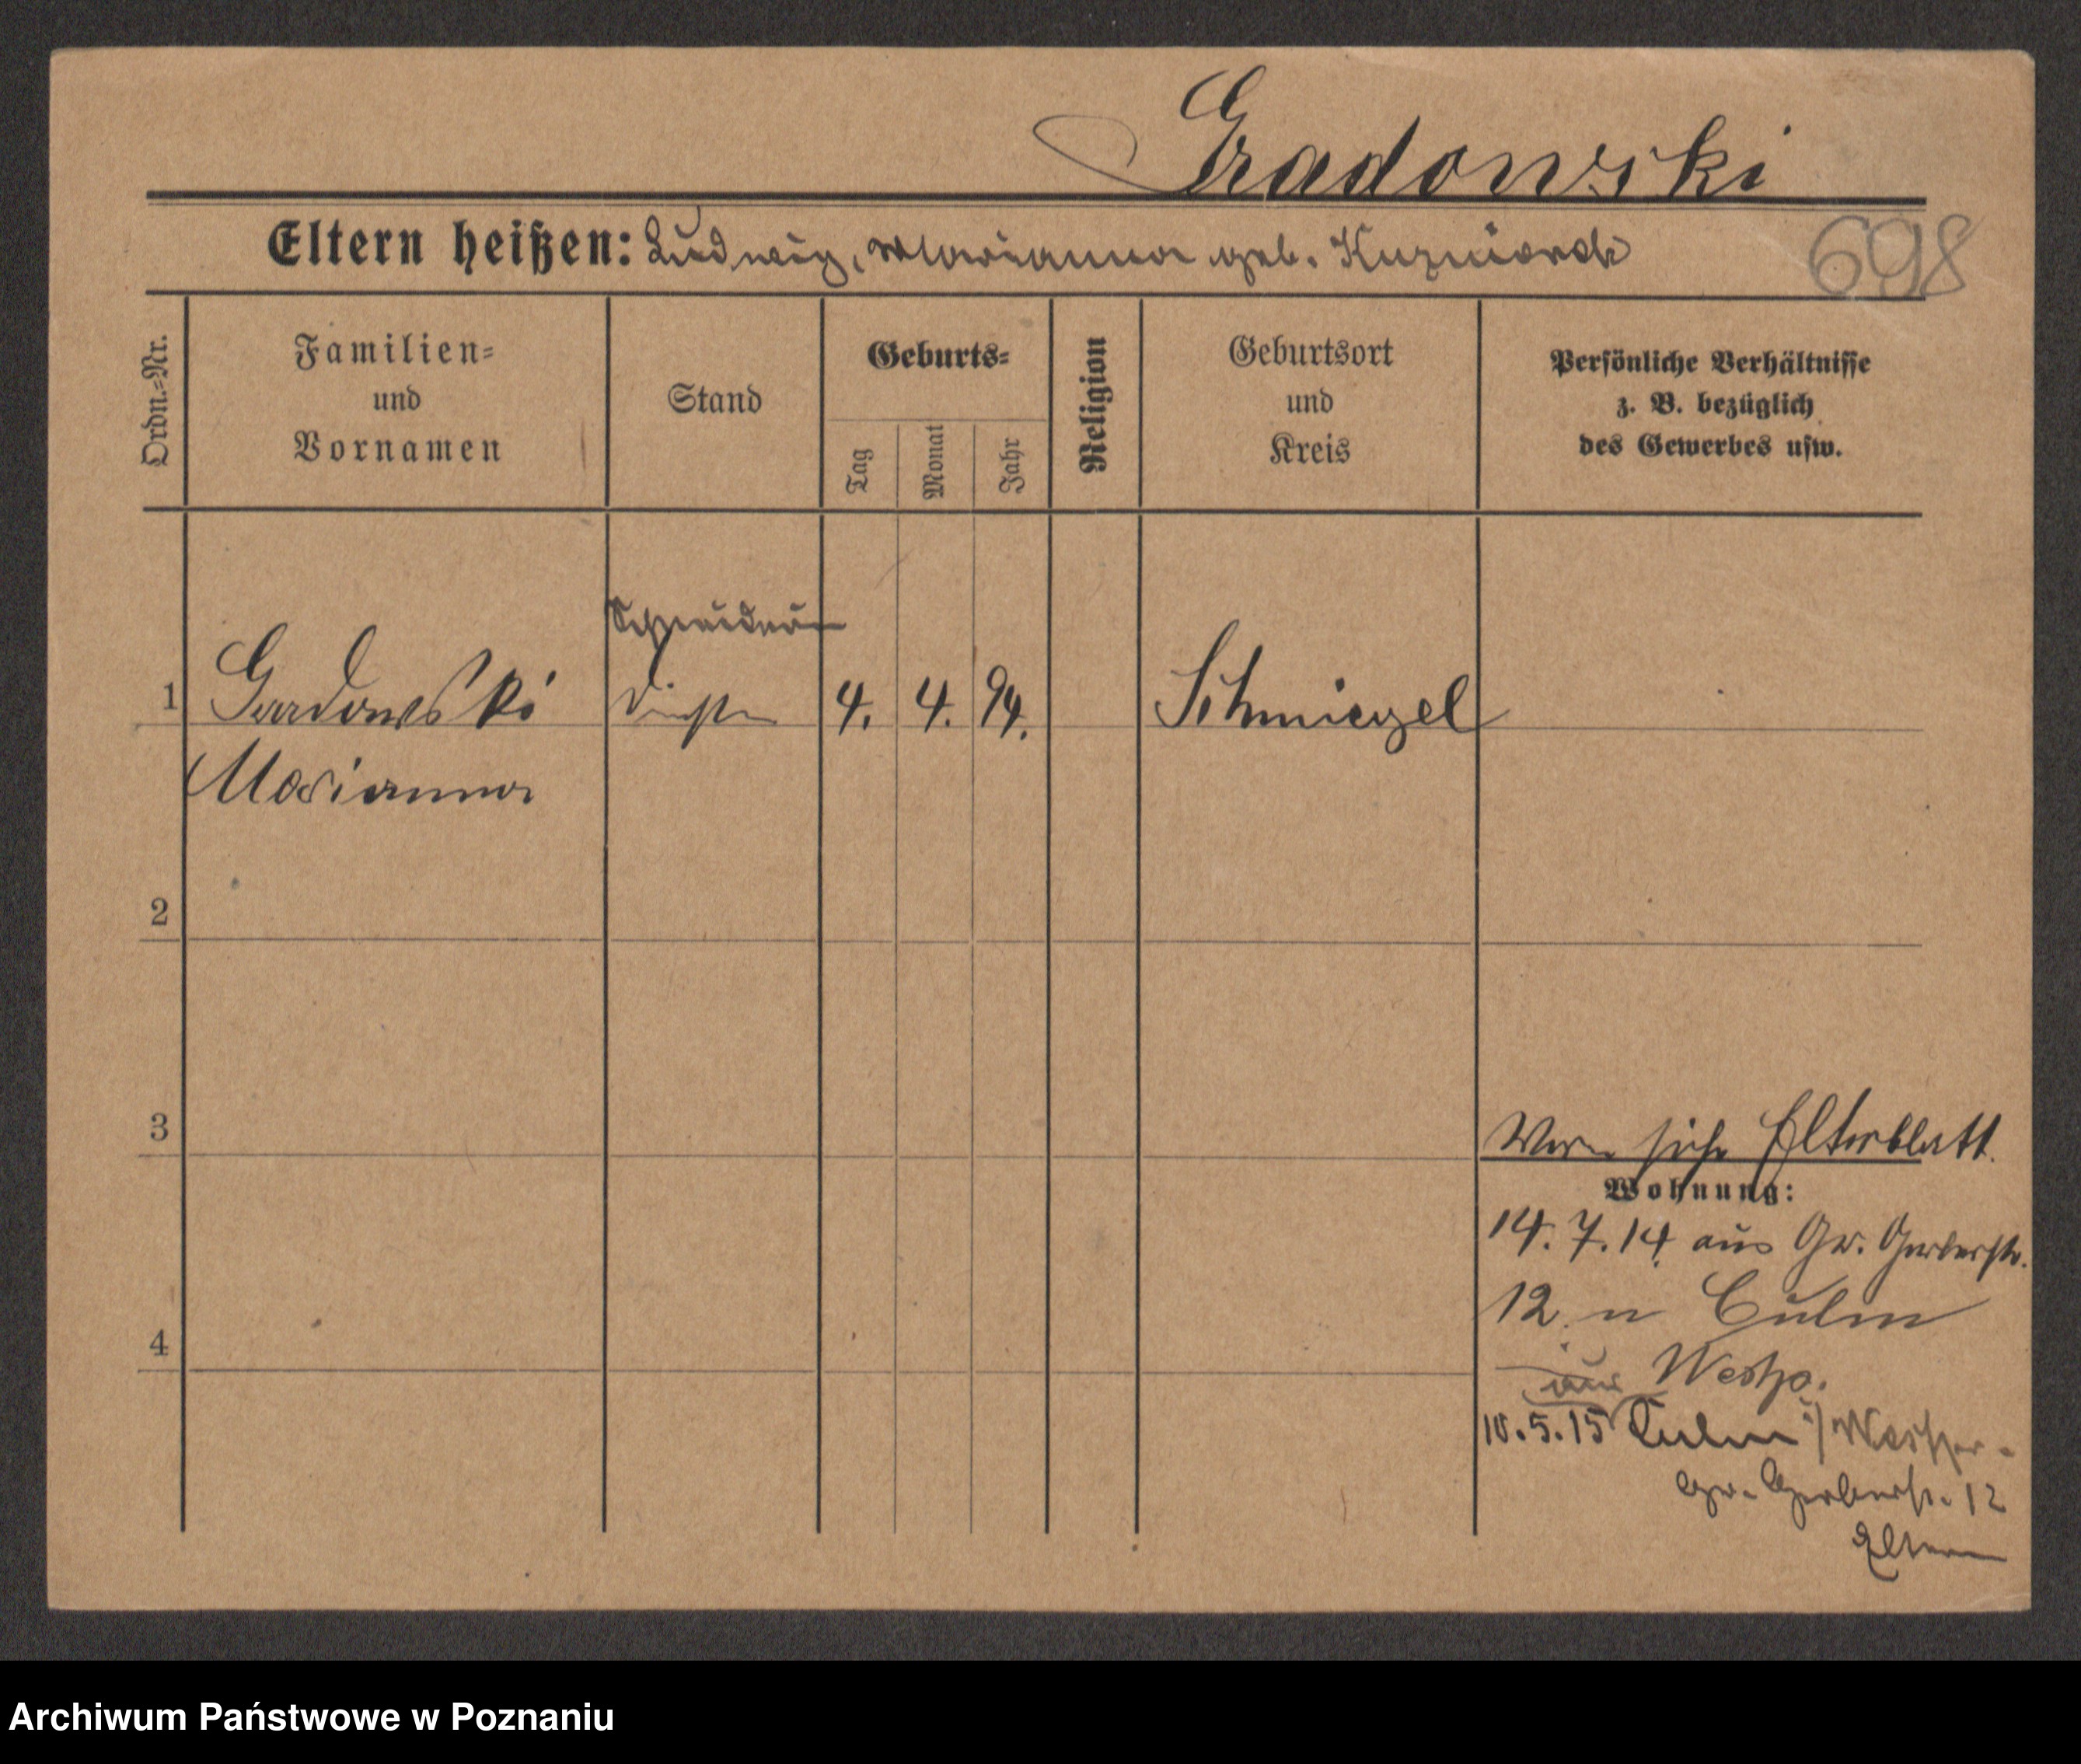 Gradowski
Eltern heißen: Ludwig, Marianna geb. Kuzniacck
698
Ordn.=Nr.
Familien=
und
Vornamen
Stand
Geburts=
Tag
Monat
Jahr
Religion
Geburtsort
und
Kreis
Persönliche Verhältnisse
z. B. bezüglich
des Gewerbes usw.
Schneiderin
1 Gradowski 4. 4. 94. Schmiegel
Marianna
2
3
siehe Elternblatt
Wohnung:
14. 7. 14 aus Gr. Gerberstr.
12. n Culm
Westp.
aus
10.5.15 Culm i/ Westpr.
Gr. Gerberstr. 12
4
Eltern
Archiwum Państwowe w Poznaniu